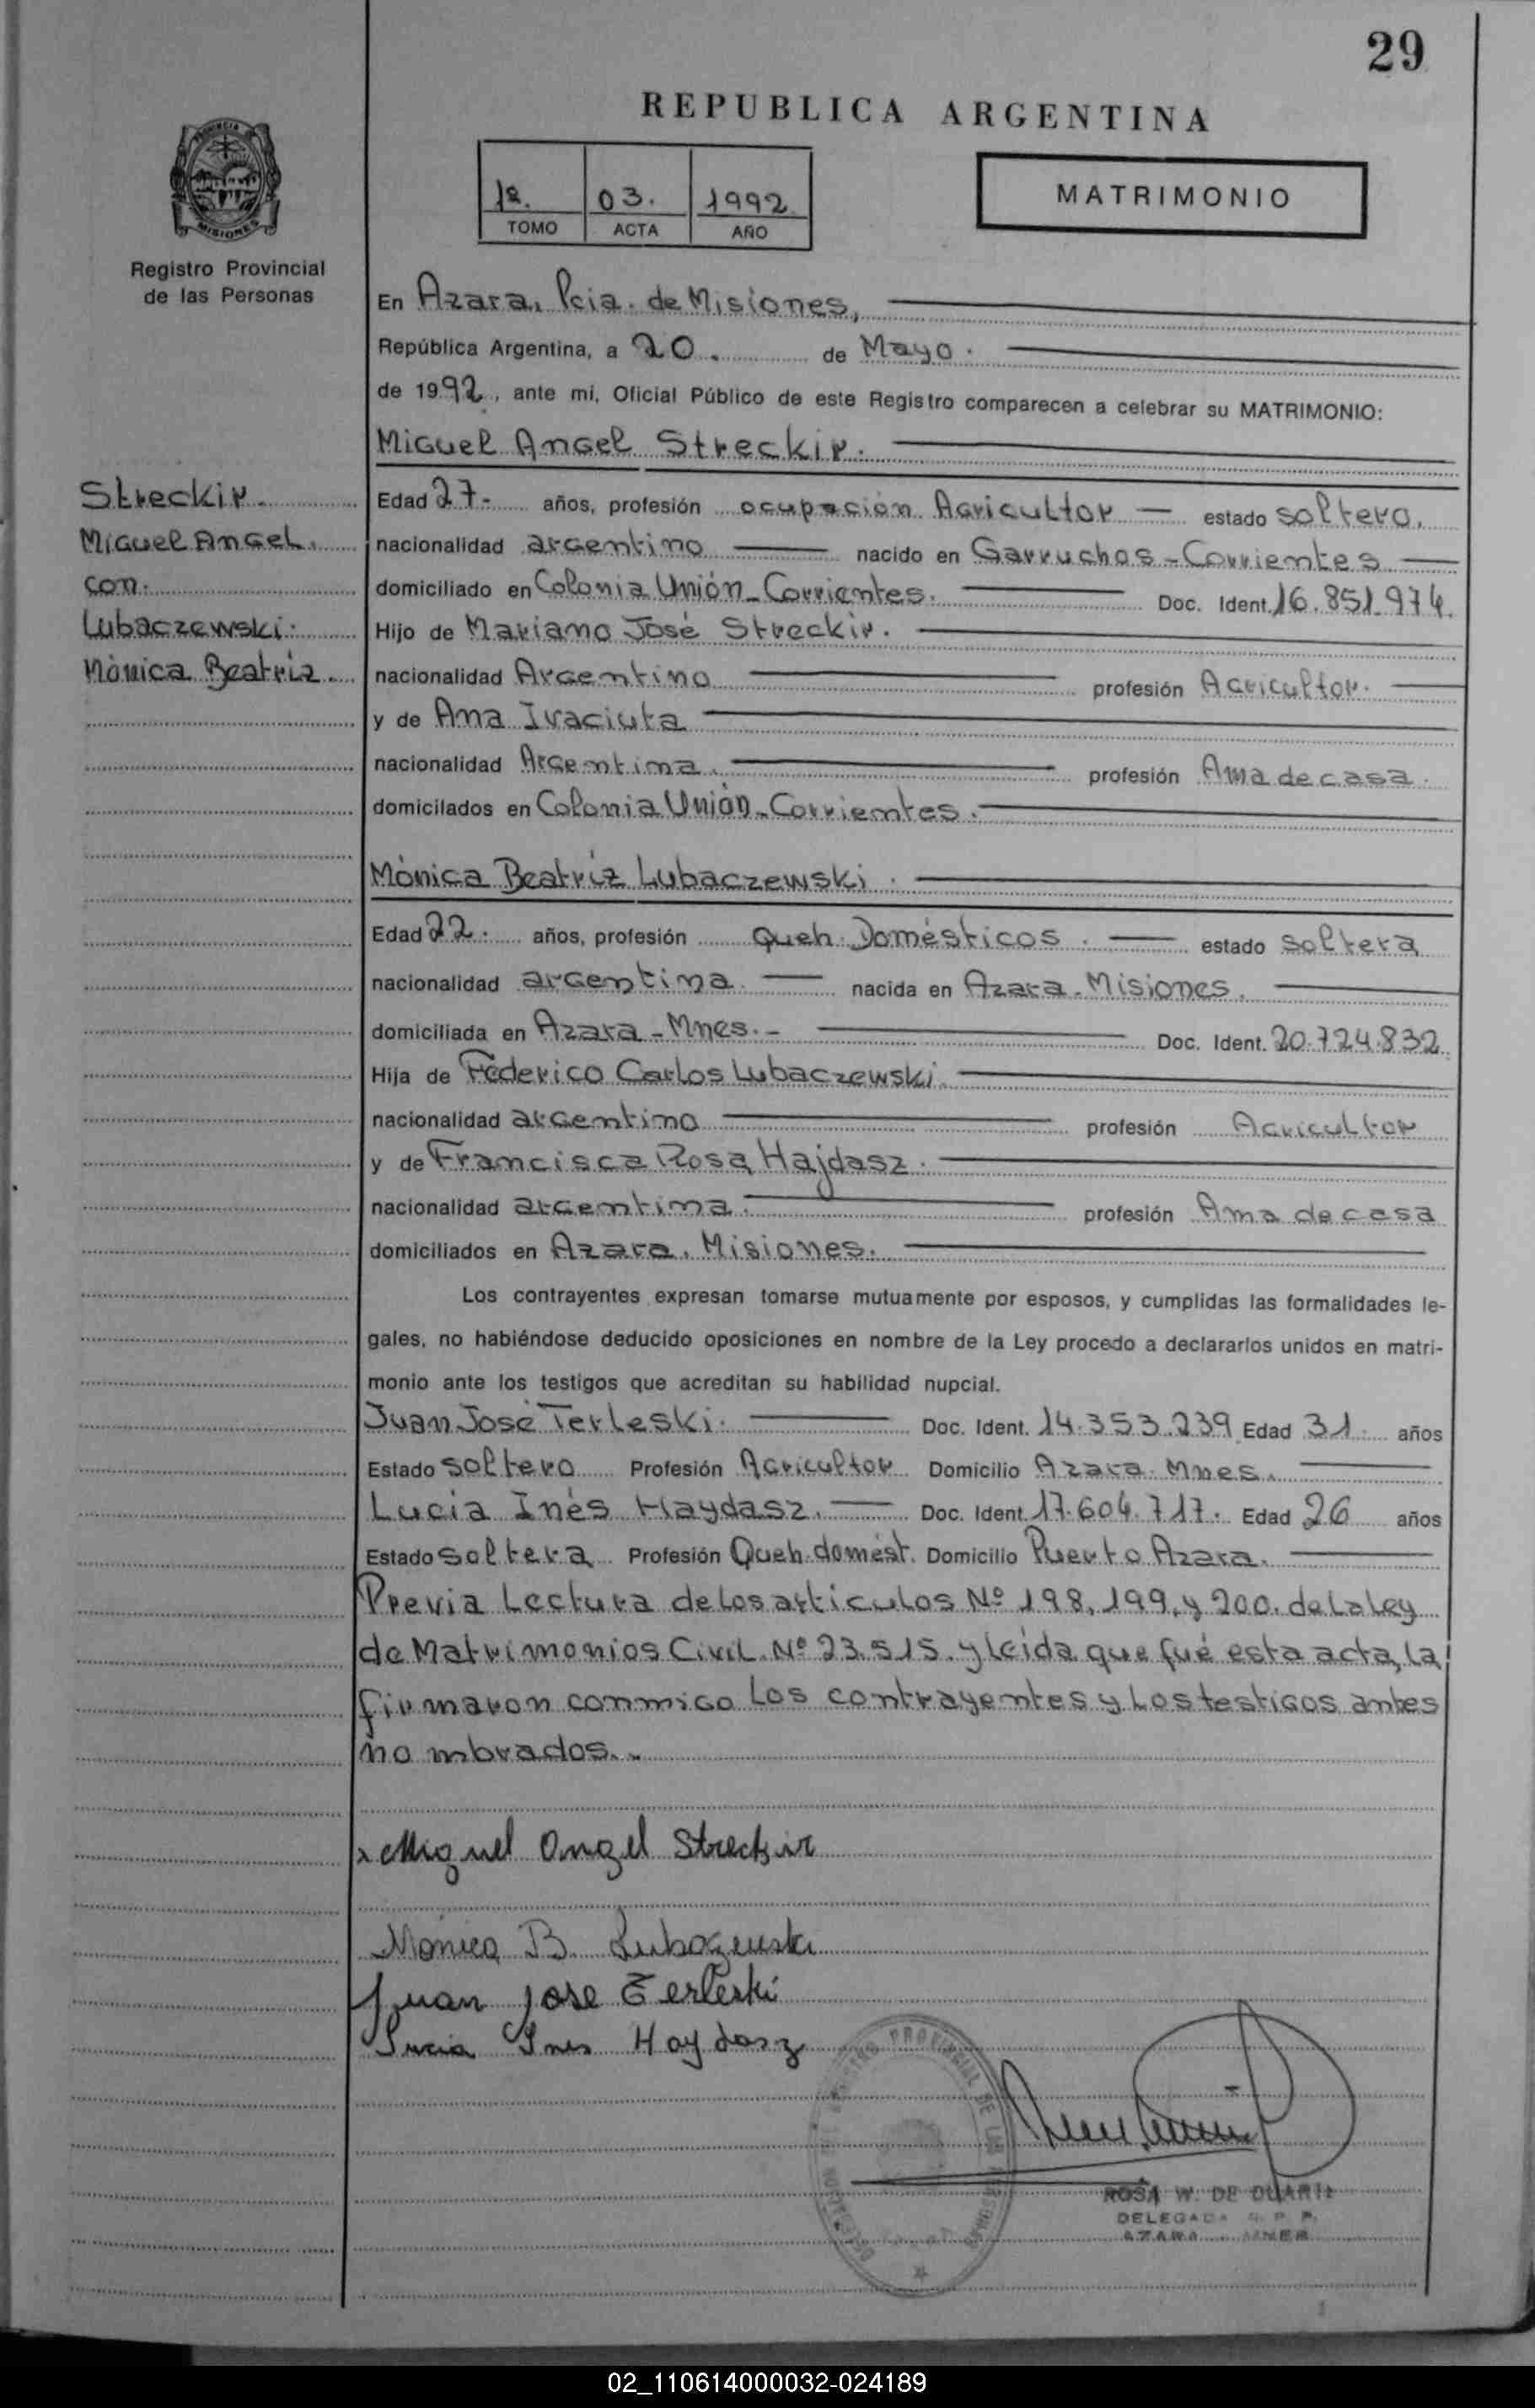 29
REPUBLICA ARGENTINA
PROVINCIA DE
MISIONES
Registro Provincial
de las Personas
1ª. 03. 1992
TOMO ACTA AÑO
MATRIMONIO
En Azara, Pcia. de Misiones,
República Argentina, a 20. de Mayo.
de 1992, ante mi, Oficial Público de este Registro comparecen a celebrar su MATRIMONIO:
Miguel Angel Streckir.
Streckir.
Miguel Angel.
con.
Lubaczewski.
Mònica Beatriz.
Edad 27.- años, profesión ocupación Agricultor estado soltero.
nacionalidad argentino nacido en Garruchos-Corrientes
domiciliado en Colonia Unión-Corrientes. Doc. Ident. 16.851.974.
Hijo de Mariano José Streckir.
nacionalidad Argentino profesión Agricultor.
y de Ana Iraciuta
nacionalidad Argentina. profesión Ama de casa.
domicilados en Colonia Unión-Corrientes.
Mònica Beatriz Lubaczewski.
Edad 22. años, profesión Queh. Domésticos. estado soltera
nacionalidad argentina. nacida en Azara-Misiones.
domiciliada en Azara-Mnes.- Doc. Ident. 20.724.832.
Hija de Féderico Carlos Lubaczewski.
nacionalidad argentino profesión Agricultor
y de Francisca Rosa Hajdasz.
nacionalidad argentina. profesión Ama de casa
domiciliados en Azara. Misiones.
Los contrayentes expresan tomarse mutuamente por esposos, y cumplidas las formalidades le-
gales, no habiéndose deducido oposiciones en nombre de la Ley procedo a declararlos unidos en matri-
monio ante los testigos que acreditan su habilidad nupcial.
Juan José Terleski. Doc. Ident. 14.353.239 Edad 31. años
Estado soltero Profesión Agricultor Domicilio Azara. Mnes.
Lucía Inés Haydasz. Doc. Ident. 17.604.717. Edad 26 años
Estado soltera. Profesión Queh. domést. Domicilio Puerto Azara.
Previa Lectura de los artículos Nº 198, 199, y 200. de la ley
de Matrimonios Civil. Nº 23.515. y leída que fué esta acta, la
firmaron conmigo los contrayentes y los testigos antes
nombrados..
x Miguel Angel Streckir
Mónica B. Lubaczewski
Juan Jose Terleski
Lucia Ines Haydasz
REGISTRO PROVINCIAL DE LAS PERSONAS
ROSA W. DE DUARTE
DELEGADA R. P. P.
AZARA - MNES
02_110614000032-024189